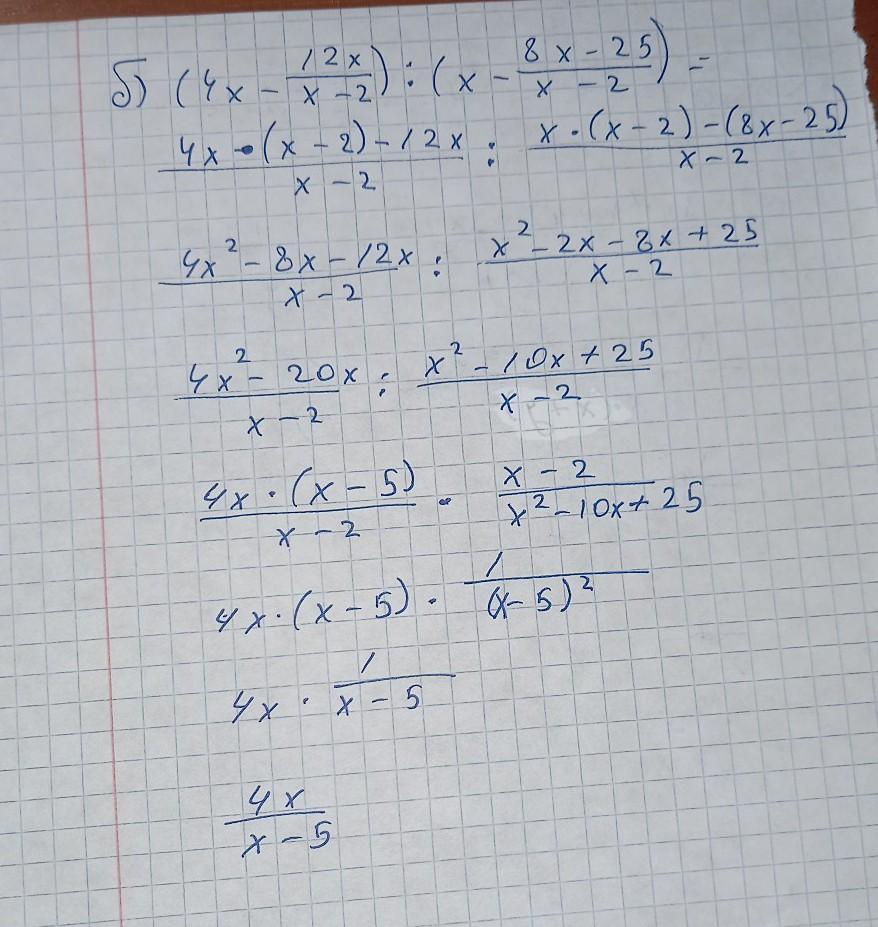 б) (4x - 12x/(x - 2)) : (x - (8x - 25)/(x - 2)) =
(4x · (x - 2) - 12x)/(x - 2) : (x · (x - 2) - (8x - 25))/(x - 2)
(4x² - 8x - 12x)/(x - 2) : (x² - 2x - 8x + 25)/(x - 2)
(4x² - 20x)/(x - 2) : (x² - 10x + 25)/(x - 2)
(4x · (x - 5))/(x - 2) · (x - 2)/(x² - 10x + 25)
4x · (x - 5) · 1/(x - 5)²
4x · 1/(x - 5)
4x/(x - 5)